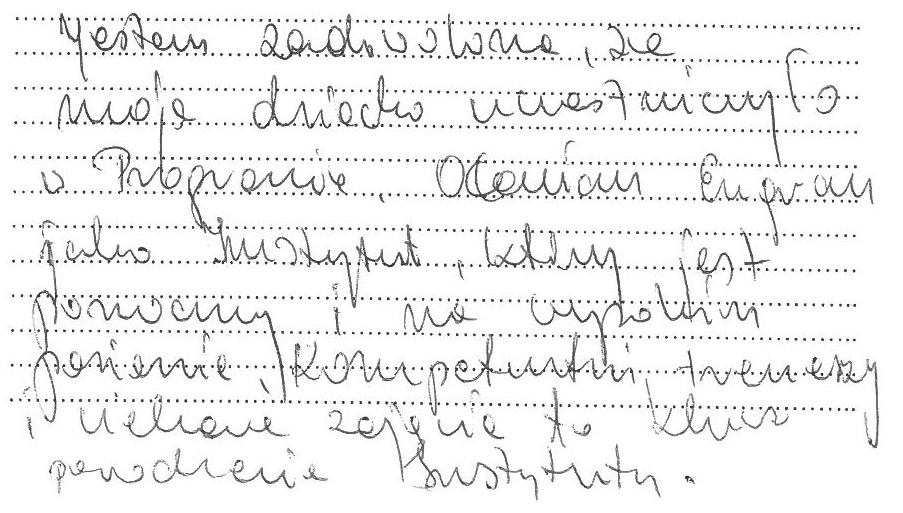 Jestem zadowolona, że
moje dziecko uczestniczyło
w Programie. Oceniam
jako Instytut, który jest
pomocny i na wysokim
poziomie. Kompetentni trenerzy
i ciekawe zajęcia to klucz
powodzenia Instytutu.